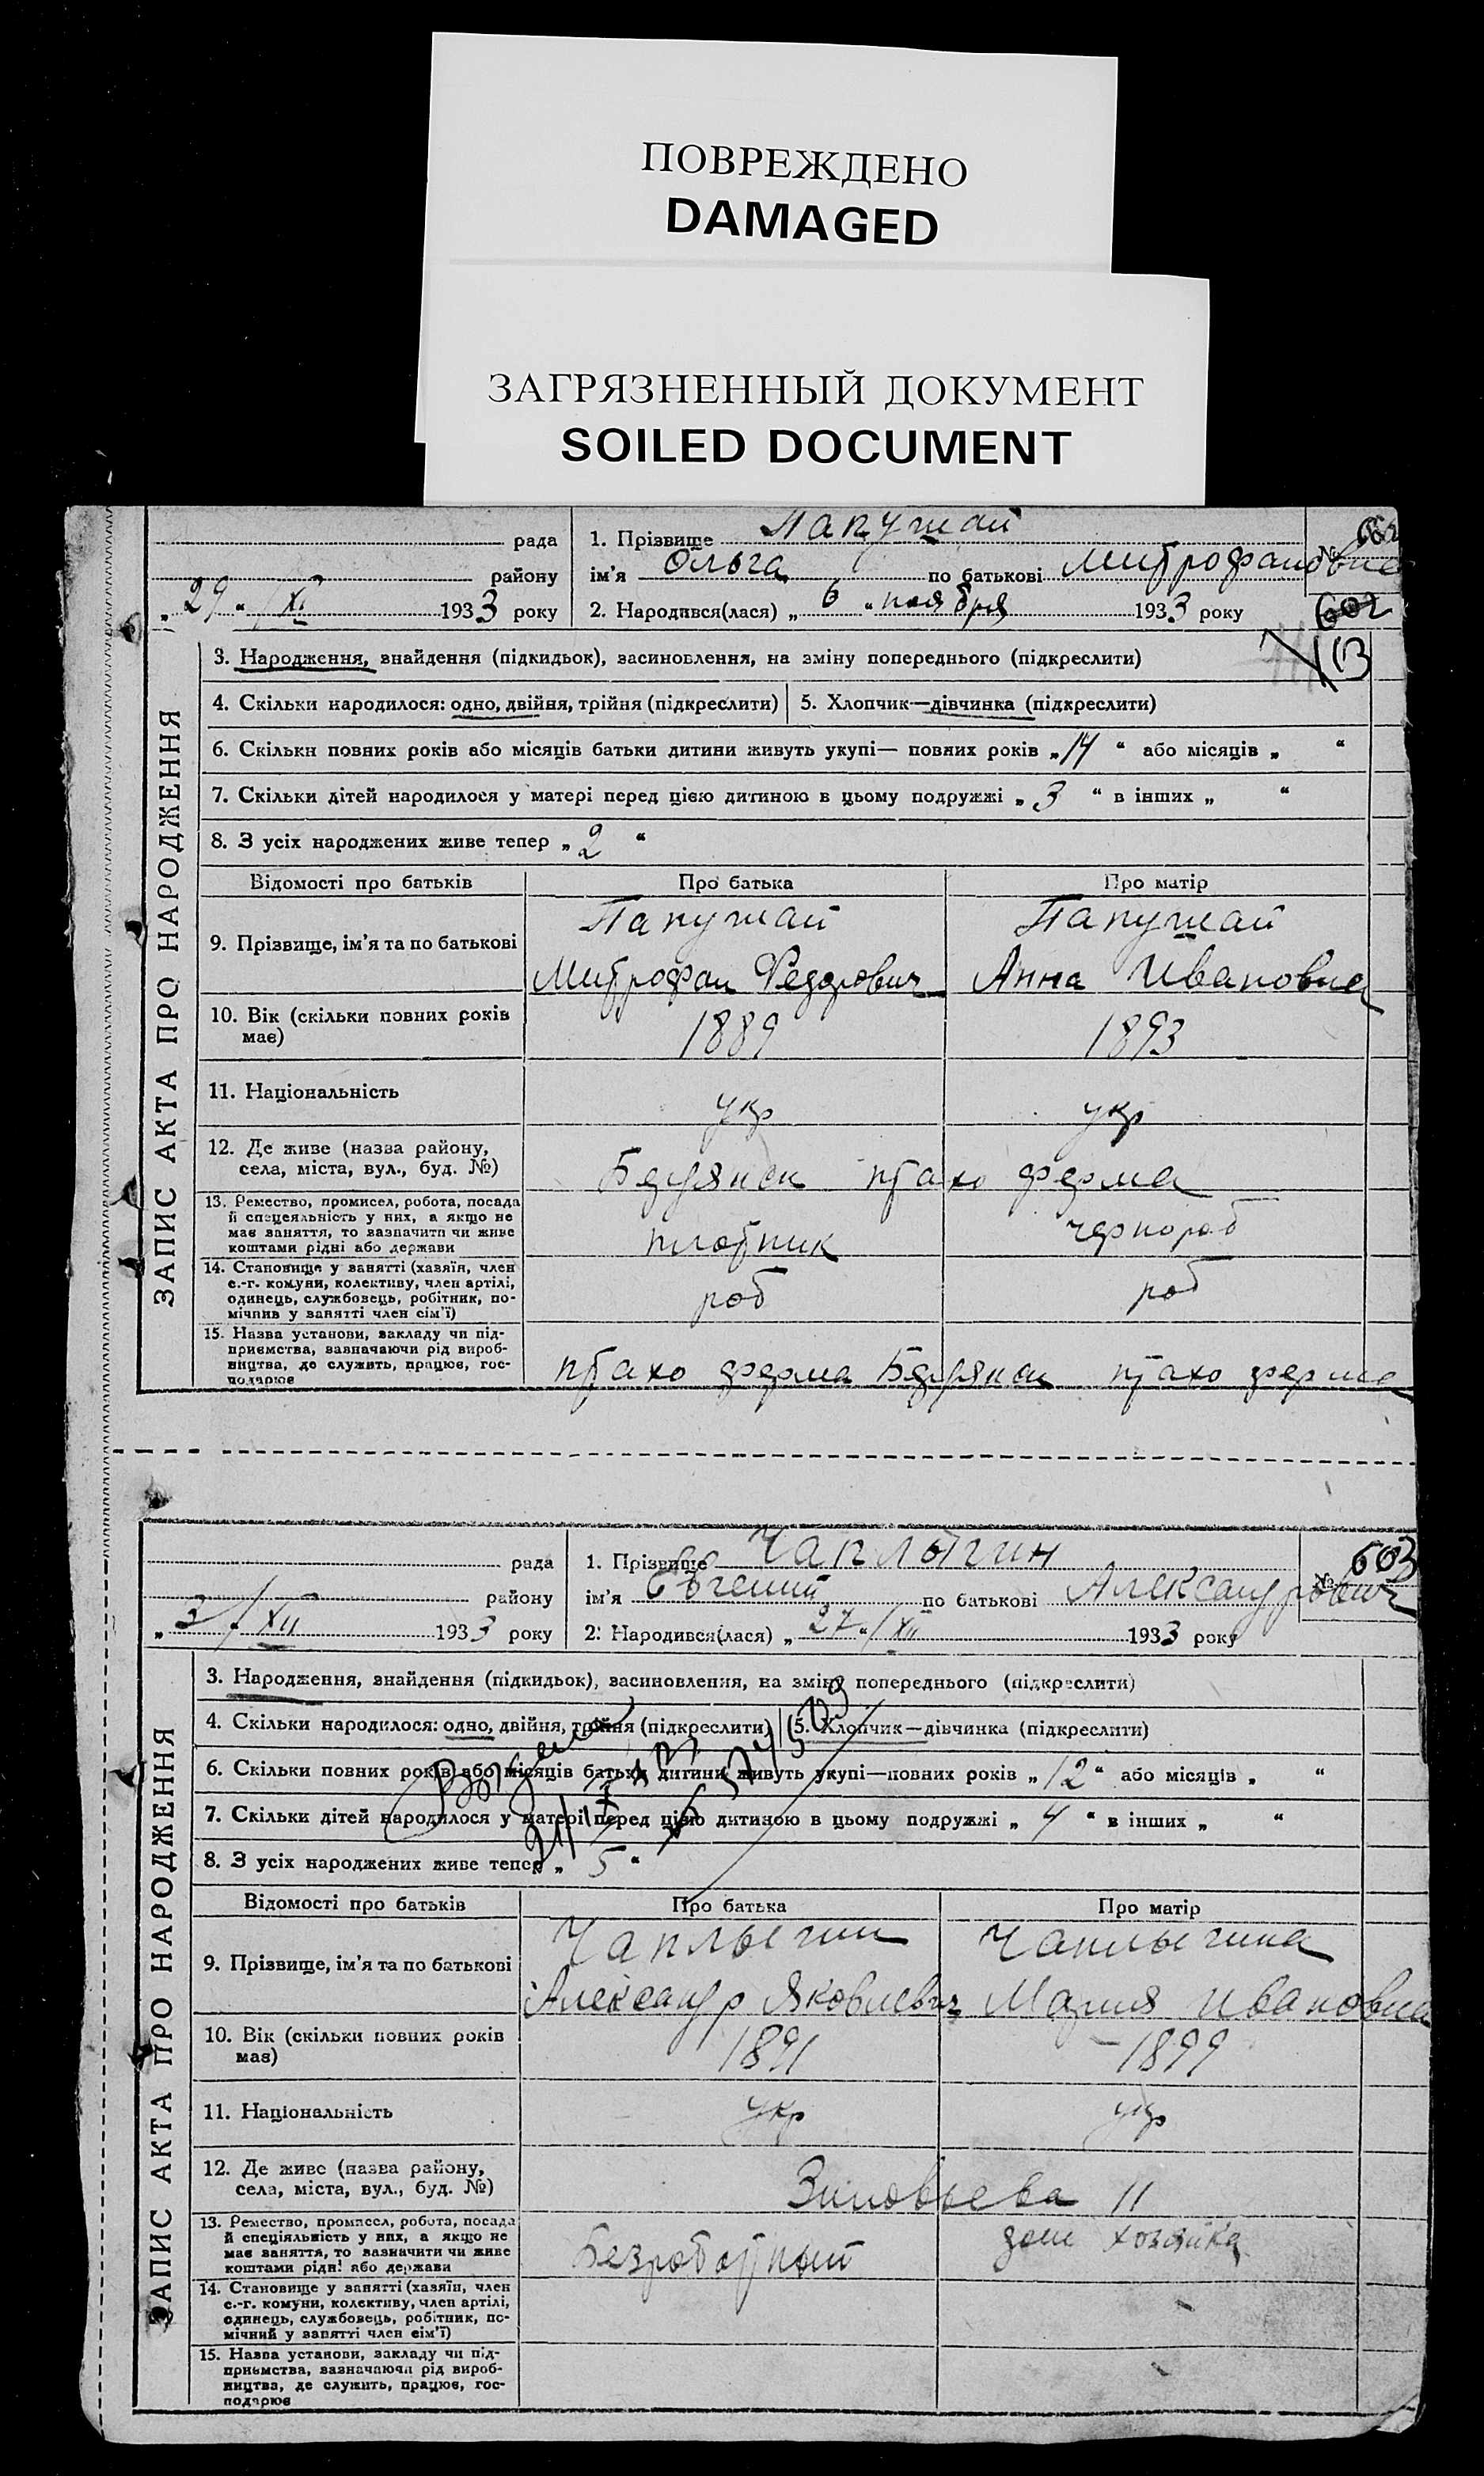 ПОВРЕЖДЕНО
DAMAGED
ЗАГРЯЗНЕННЫЙ ДОКУМЕНТ
SOILED DOCUMENT
рада
1. Прізвище Папушай
№
району
ім'я Ольга по батькові Митрофановна
„29“ XI 1933 року
2. Народився(лася) „6“ ноября 1933 року
602
ЗАПИС АКТА ПРО НАРОДЖЕННЯ
3. Народження, знайдення (підкидьок), засиновлення, на зміну попереднього (підкреслити)
4. Скільки народилося: одно, двійня, трійня (підкреслити)
5. Хлопчик—дівчинка (підкреслити)
6. Скільки повних років або місяців батьки дитини живуть укупі— повних років „14“ або місяців „ “
7. Скільки дітей народилося у матері перед цією дитиною в цьому подружжі „3“ в інших „ “
8. З усіх народжених живе тепер „2“
Відомості про батьків
Про батька
Про матір
9. Прізвище, ім'я та по батькові
Папушай
Митрофан Федорович
Папушай
Анна Ивановна
10. Вік (скільки повних років
має)
1889
1893
11. Національність
укр
укр
12. Де живе (назва району,
села, міста, вул., буд. №)
Бердянск птахо ферма
13. Ремество, промисел, робота, посада
й спецеяльність у них, а якщо не
має заняття, то зазначити чи живе
коштами рідні або держави
плотник
чернораб
14. Становище у занятті (хазяїн, член
с.-г. комуни, колективу, член артілі,
одинець, службовець, робітник, по-
мічник у занятті член сім'ї)
роб
роб
15. Назва установи, закладу чи під-
приємства, зазначаючи рід вироб-
ництва, де служить, працює, гос-
подарює
птахо ферма Бердянск птахо ферма
рада
1. Прізвище Чаплыгин
№ 603
району
ім'я Евгений по батькові Александрович
„3“ XII 1933 року
2. Народився(лася) „27“ XII 1933 року
ЗАПИС АКТА ПРО НАРОДЖЕННЯ
3. Народження, знайдення (підкидьок), засиновлення, на зміну попереднього (підкреслити)
4. Скільки народилося: одно, двійня, трійня (підкреслити)
5. Хлопчик—дівчинка (підкреслити)
6. Скільки повних років або місяців батьки дитини живуть укупі—повних років „12“ або місяців „ “
7. Скільки дітей народилося у матері перед цією дитиною в цьому подружжі „4“ в інших „ “
8. З усіх народжених живе тепер „5“
Відомості про батьків
Про батька
Про матір
9. Прізвище, ім'я та по батькові
Чаплыгин
Александр Яковлевич
Чаплыгина
Мария Ивановна
10. Вік (скільки повних років
має)
1891
1899
11. Національність
укр
укр
12. Де живе (назва району,
села, міста, вул., буд. №)
Зиновьева 11
13. Ремество, промисел, робота, посада
й спеціяльність у них, а якщо не
має заняття, то зазначити чи живе
коштами рідні або держави
Безработный
дом хозяйка
14. Становище у занятті (хазяїн, член
с.-г. комуни, колективу, член артілі,
одинець, службовець, робітник, по-
мічний у занятті член сім'ї)
15. Назва установи, закладу чи під-
приємства, зазначаючи рід вироб-
ництва, де служить, працює, гос-
подарює